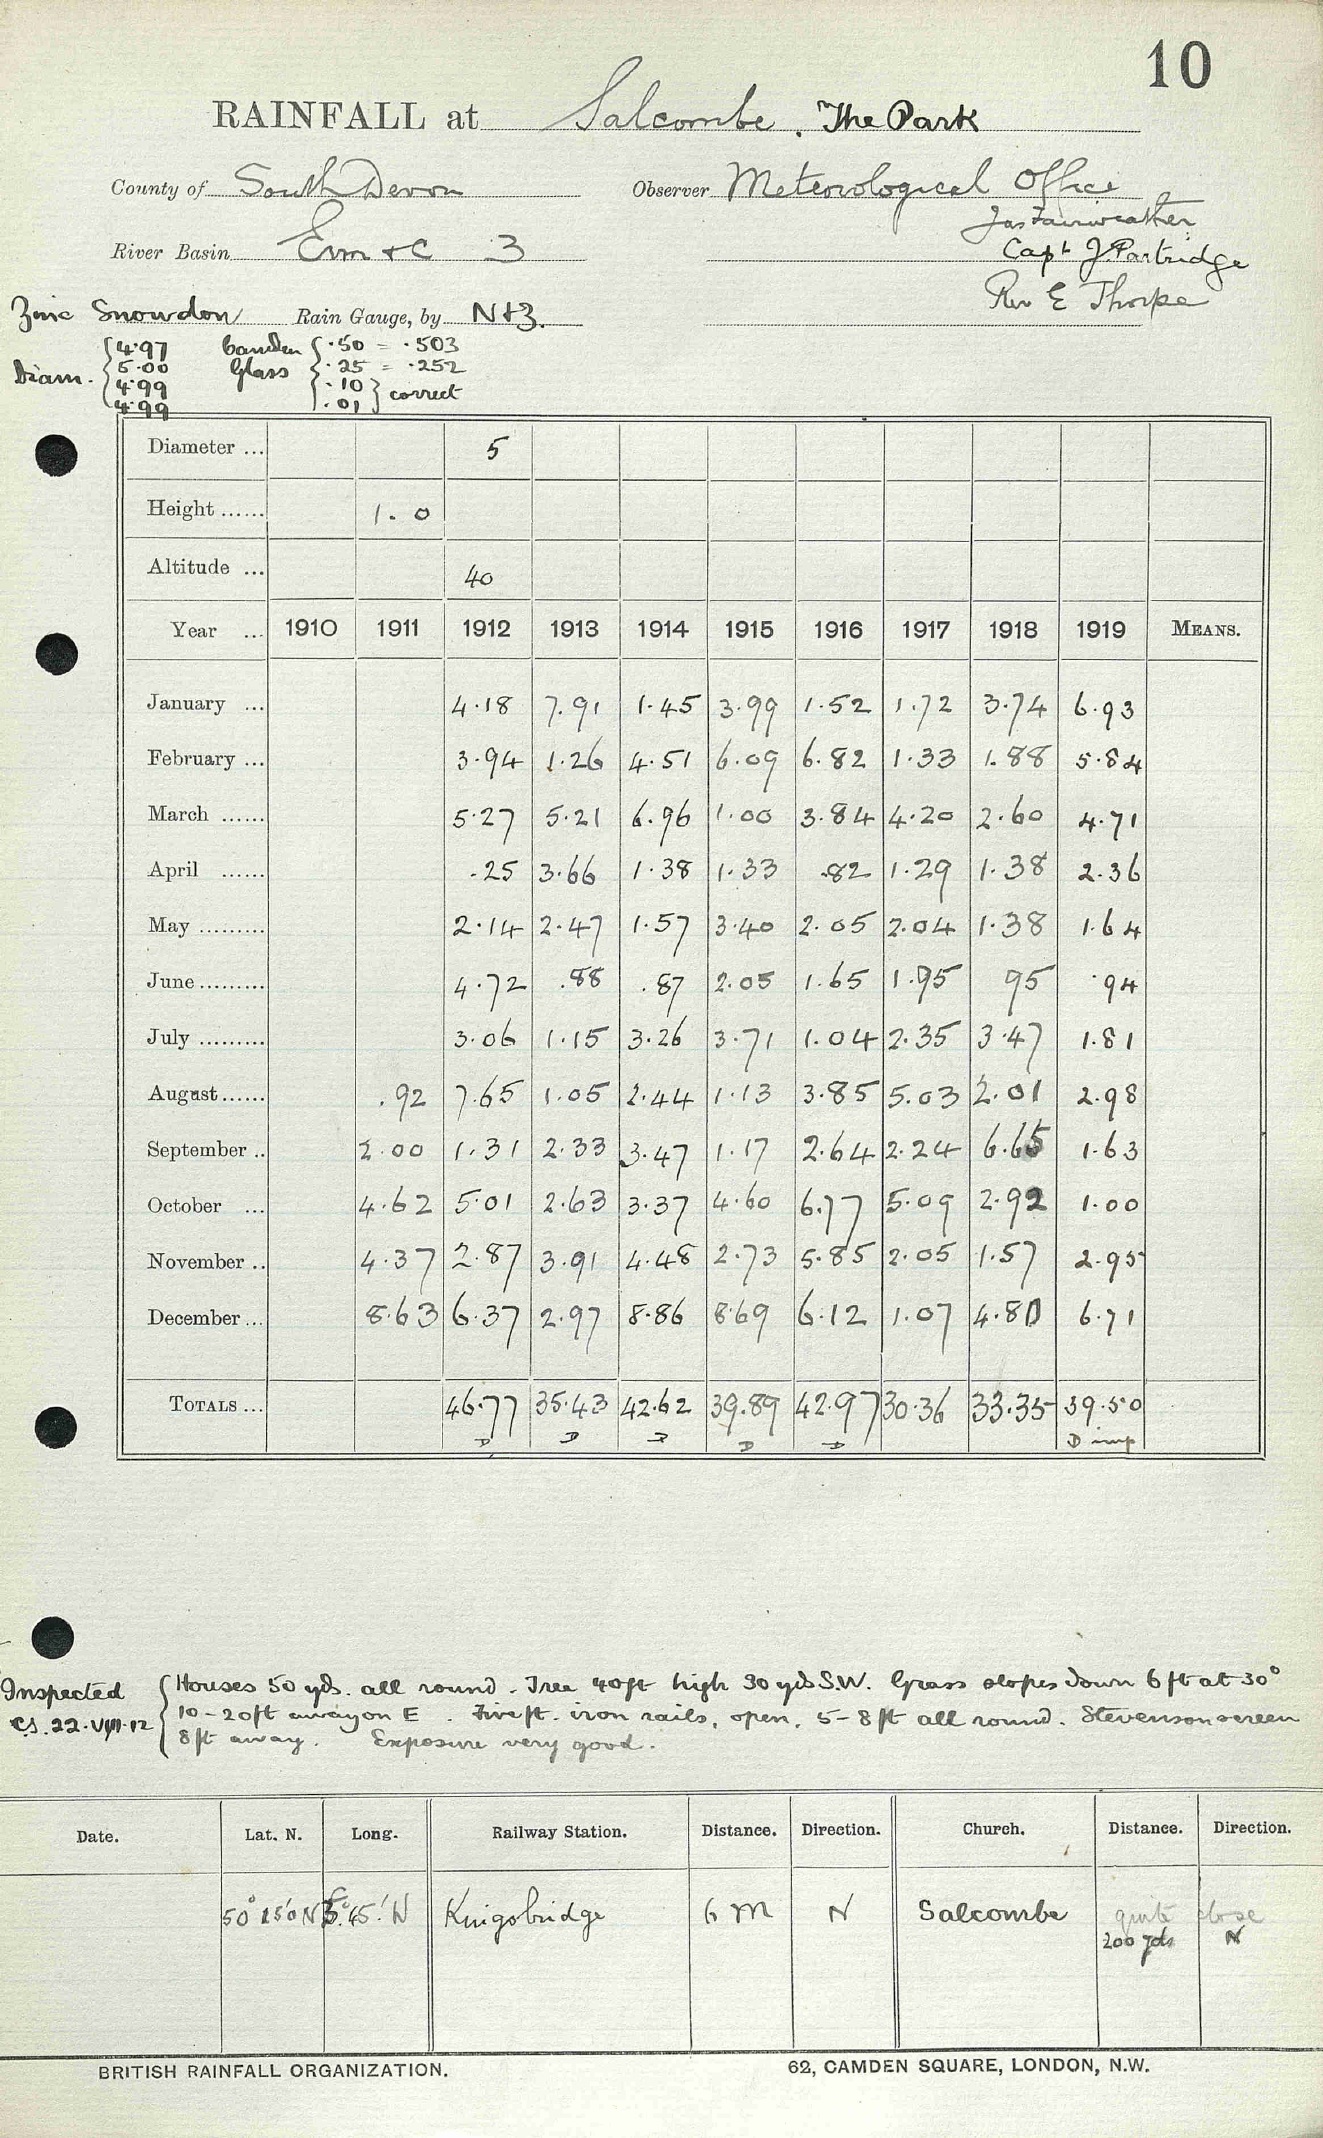 10
RAINFALL at Salcombe. The Park
County of South Devon Observer Meteorological Office
Jas Fairweather
River Basin Erm & C 3 Capt J. Partridge
Rev E Thorpe
Zinc Snowdon Rain Gauge, by N & Z.
Diam. { 4.97 Camden Glass { .50 = .503
5.00 .25 = .252
4.99 .10 } correct
4.99 .01
Diameter ... 5
Height ...... 1.0
Altitude ... 40
Year ... 1910 1911 1912 1913 1914 1915 1916 1917 1918 1919 MEANS.
January ... 4.18 7.91 1.45 3.99 1.52 1.72 3.74 6.93
February ... 3.94 1.26 4.51 6.09 6.82 1.33 1.88 5.84
March ...... 5.27 5.21 6.96 1.00 3.84 4.20 2.60 4.71
April ...... .25 3.66 1.38 1.33 .82 1.29 1.38 2.36
May ......... 2.14 2.47 1.57 3.40 2.05 2.04 1.38 1.64
June ......... 4.72 .88 .87 2.05 1.65 1.95 95 .94
July ......... 3.06 1.15 3.26 3.71 1.04 2.35 3.47 1.81
August ...... .92 7.65 1.05 2.44 1.13 3.85 5.03 2.01 2.98
September .. 2.00 1.31 2.33 3.47 1.17 2.64 2.24 6.65 1.63
October ... 4.62 5.01 2.63 3.37 4.60 6.77 5.09 2.92 1.00
November .. 4.37 2.87 3.91 4.48 2.73 5.85 2.05 1.57 2.95
December ... 8.63 6.37 2.97 8.86 8.69 6.12 1.07 4.80 6.71
TOTALS ... 46.77 35.43 42.62 39.89 42.97 30.36 33.35 39.50
D D D D D D imp
Inspected { Houses 50 yds. all round. Tree 40ft high 30 yds S.W. Grass slopes down 6 ft at 30°
CS. 22.VIII.12 10-20ft away on E. Five ft. iron rails, open, 5-8 ft all round. Stevenson screen
8ft away. Exposure very good.
Date. Lat. N. Long. Railway Station. Distance. Direction. Church. Distance. Direction.
50° 15'0 N 3°.45' W Kingsbridge 6 m N Salcombe quite close
200 yds N
BRITISH RAINFALL ORGANIZATION. 62, CAMDEN SQUARE, LONDON, N.W.